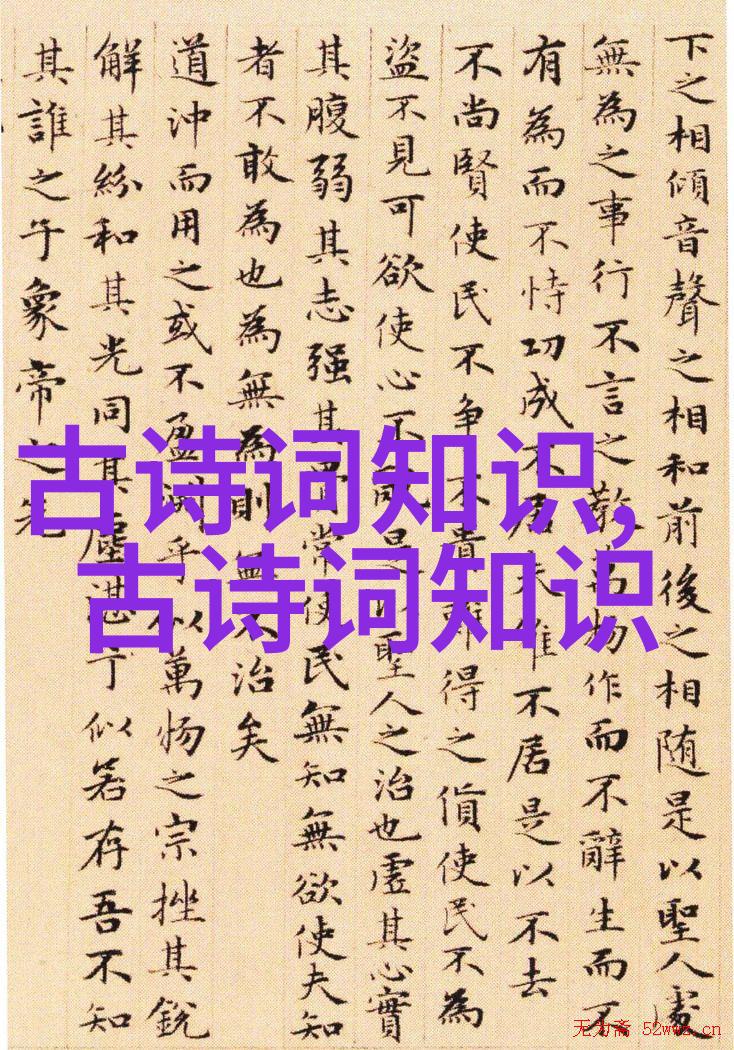 下之相傾音聲之相和前後之相随是以聖人處
無為之事行不言之教万物作而不辭生而不
有為而不恃功成不居夫唯不居是以不去
不尚賢使民不争不貴難得之貨使民不為
盜不見可欲使心不是以聖人之治也虛其心實
其腹弱其志强其常使民無知無欲使夫知
者不敢為也為無為則無不治矣
道沖而用之或不盈乎似萬物之宗挫其銳
解其紛和其光同其塵湛乎似若存吾不知
其誰之子象帝之先
古诗词知识,
古诗词知识
无为斋 52wwz.cn